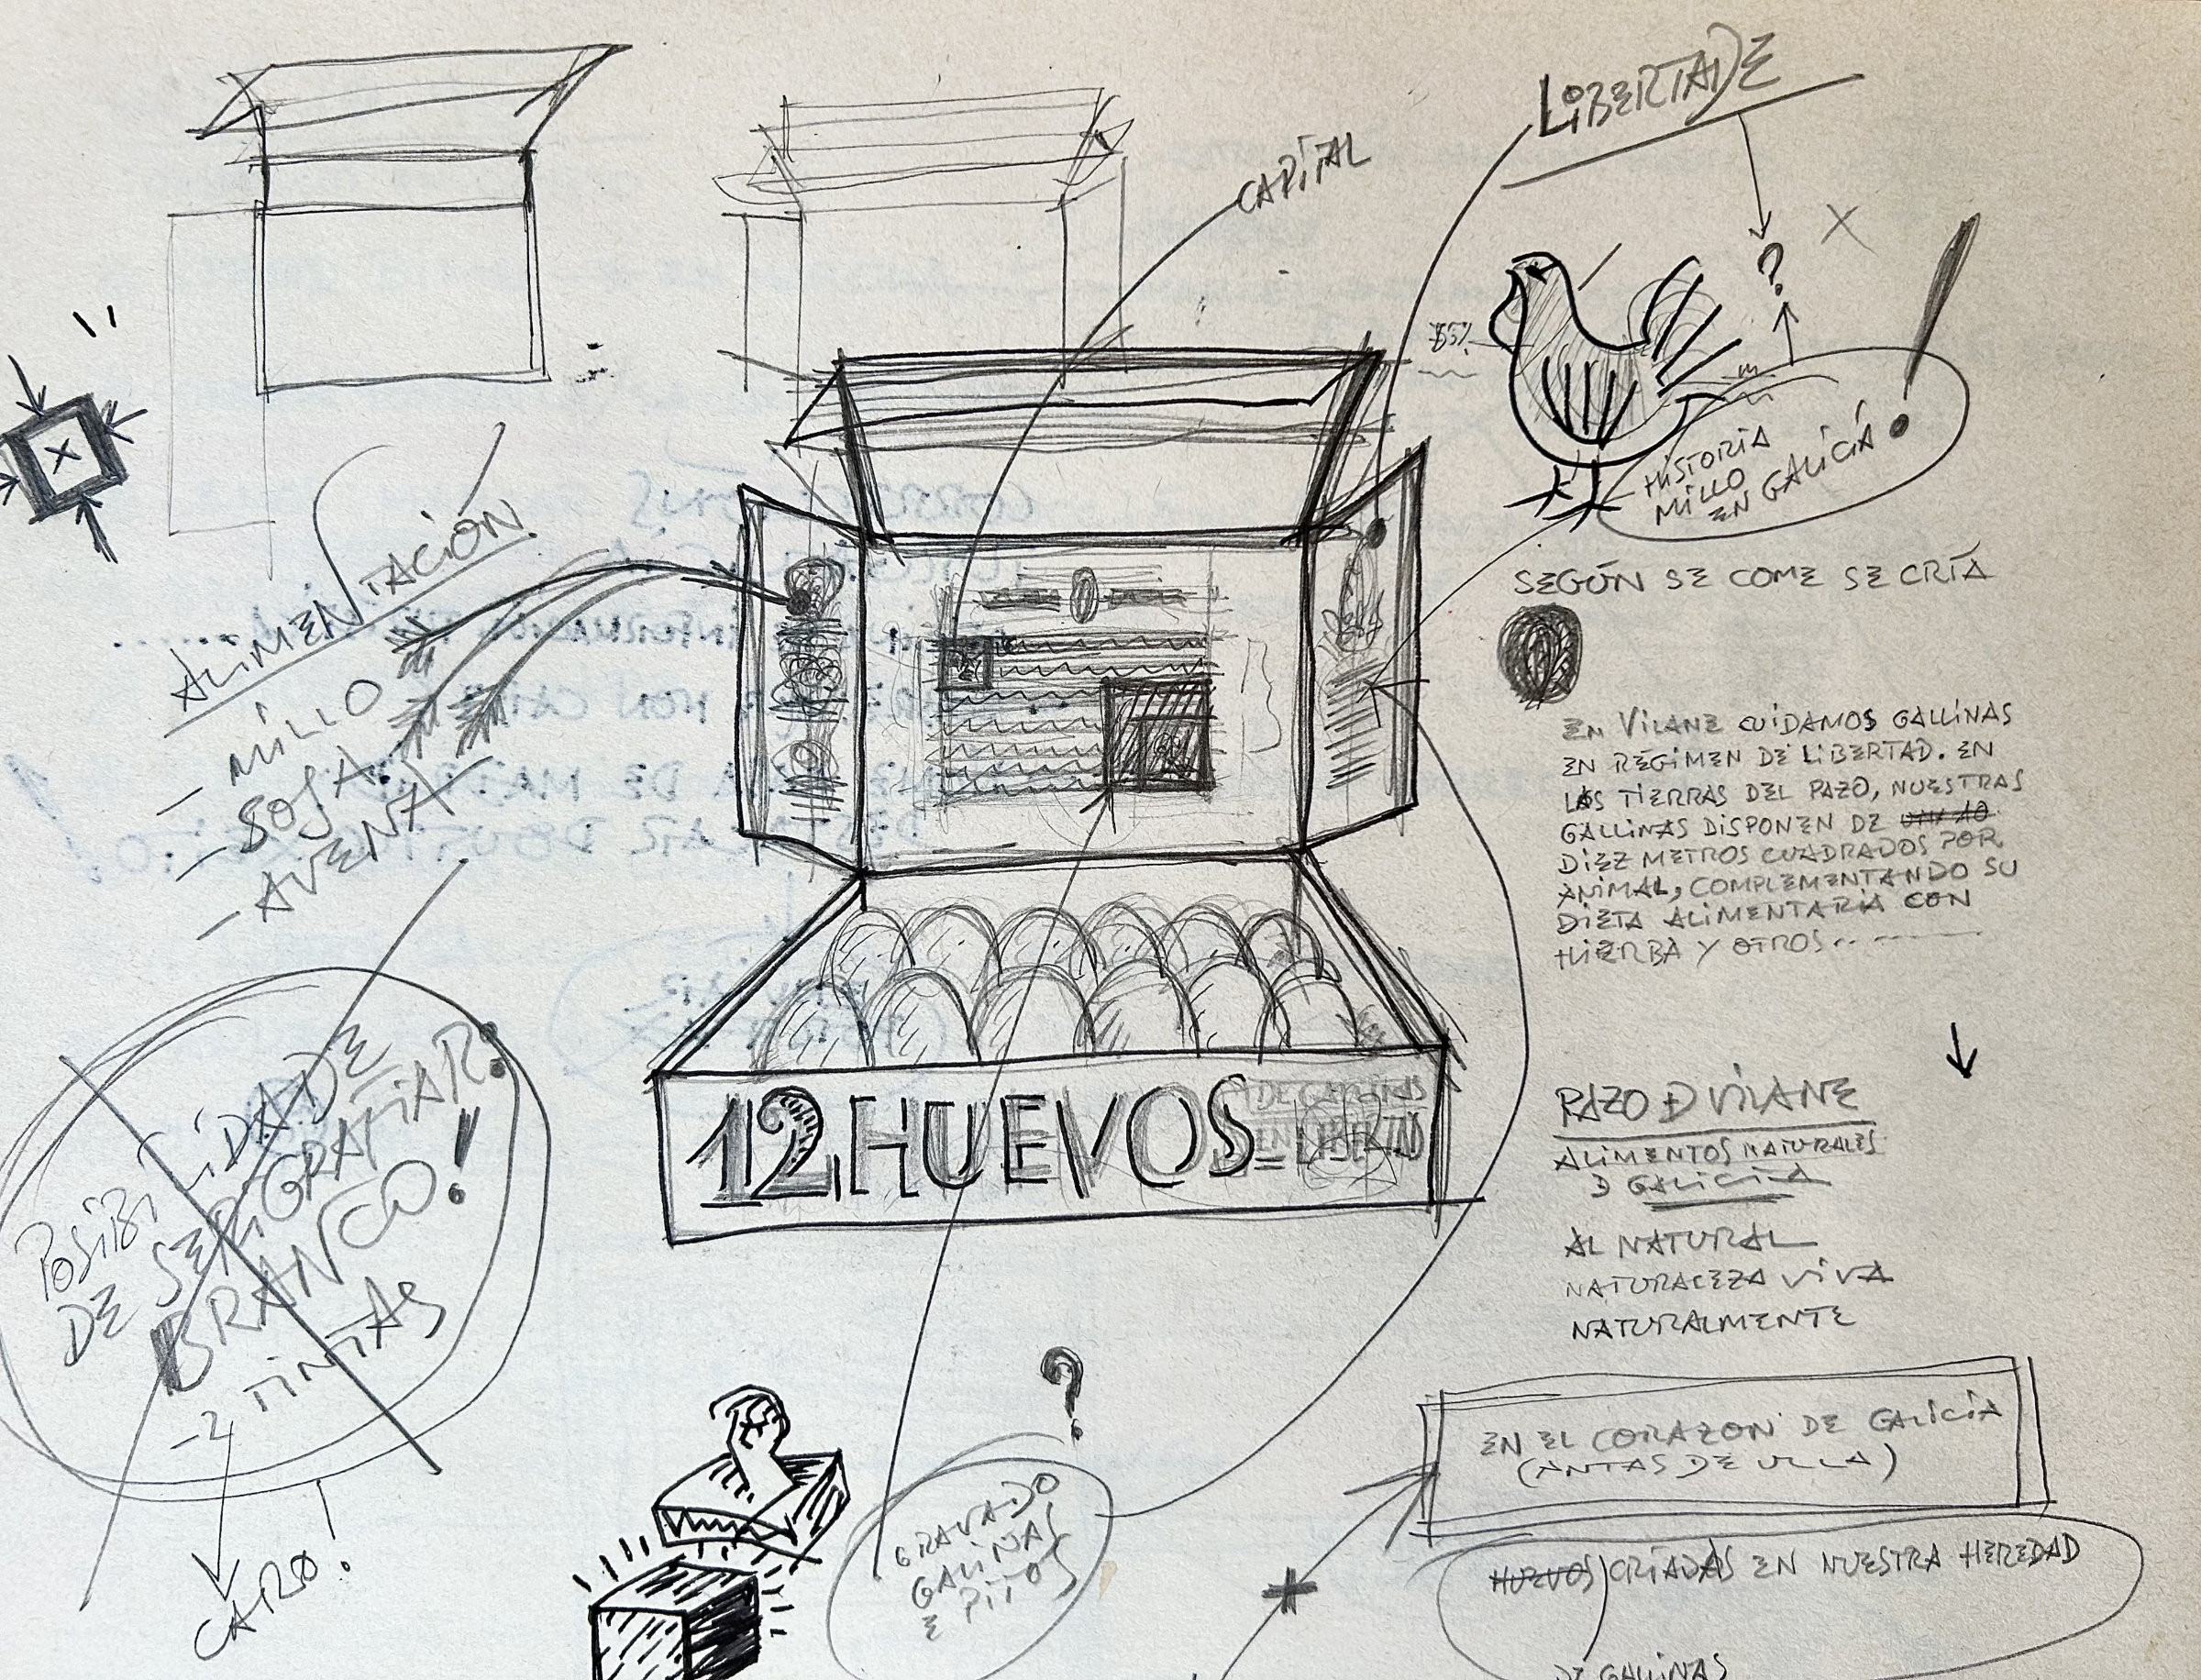 LIBERTADE
CAPITAL
?
X
55%
HISTORIA
MILLO
EN GALICIA
!
X
SEGÚN SE COME SE CRÍA
ALIMENTACIÓN
- MILLO
- SOJA
- AVENA
EN VILANE CUIDAMOS GALLINAS
EN RÉGIMEN DE LIBERTAD. EN
LAS TIERRAS DEL PAZO, NUESTRAS
GALLINAS DISPONEN DE
DIEZ METROS CUADRADOS POR
ANIMAL, COMPLEMENTANDO SU
DIETA ALIMENTARIA CON
HIERBA Y OTROS..
POSIBILIDADE
DE SERIGRAFIAR
BRANCO!
- 2 TINTAS
CARO!
12 HUEVOS
DE GALLINAS
EN LIBERTAD
PAZO D VILANE
ALIMENTOS NATURALES
D GALICIA
AL NATURAL
NATURALEZA VIVA
NATURALMENTE
?
GRAVADO
GALIÑAS
E PITOS
EN EL CORAZON DE GALICIA
(ANTAS DE ULLA)
+
HUEVOS CRIADAS EN NUESTRA HEREDAD
DE GALLINAS